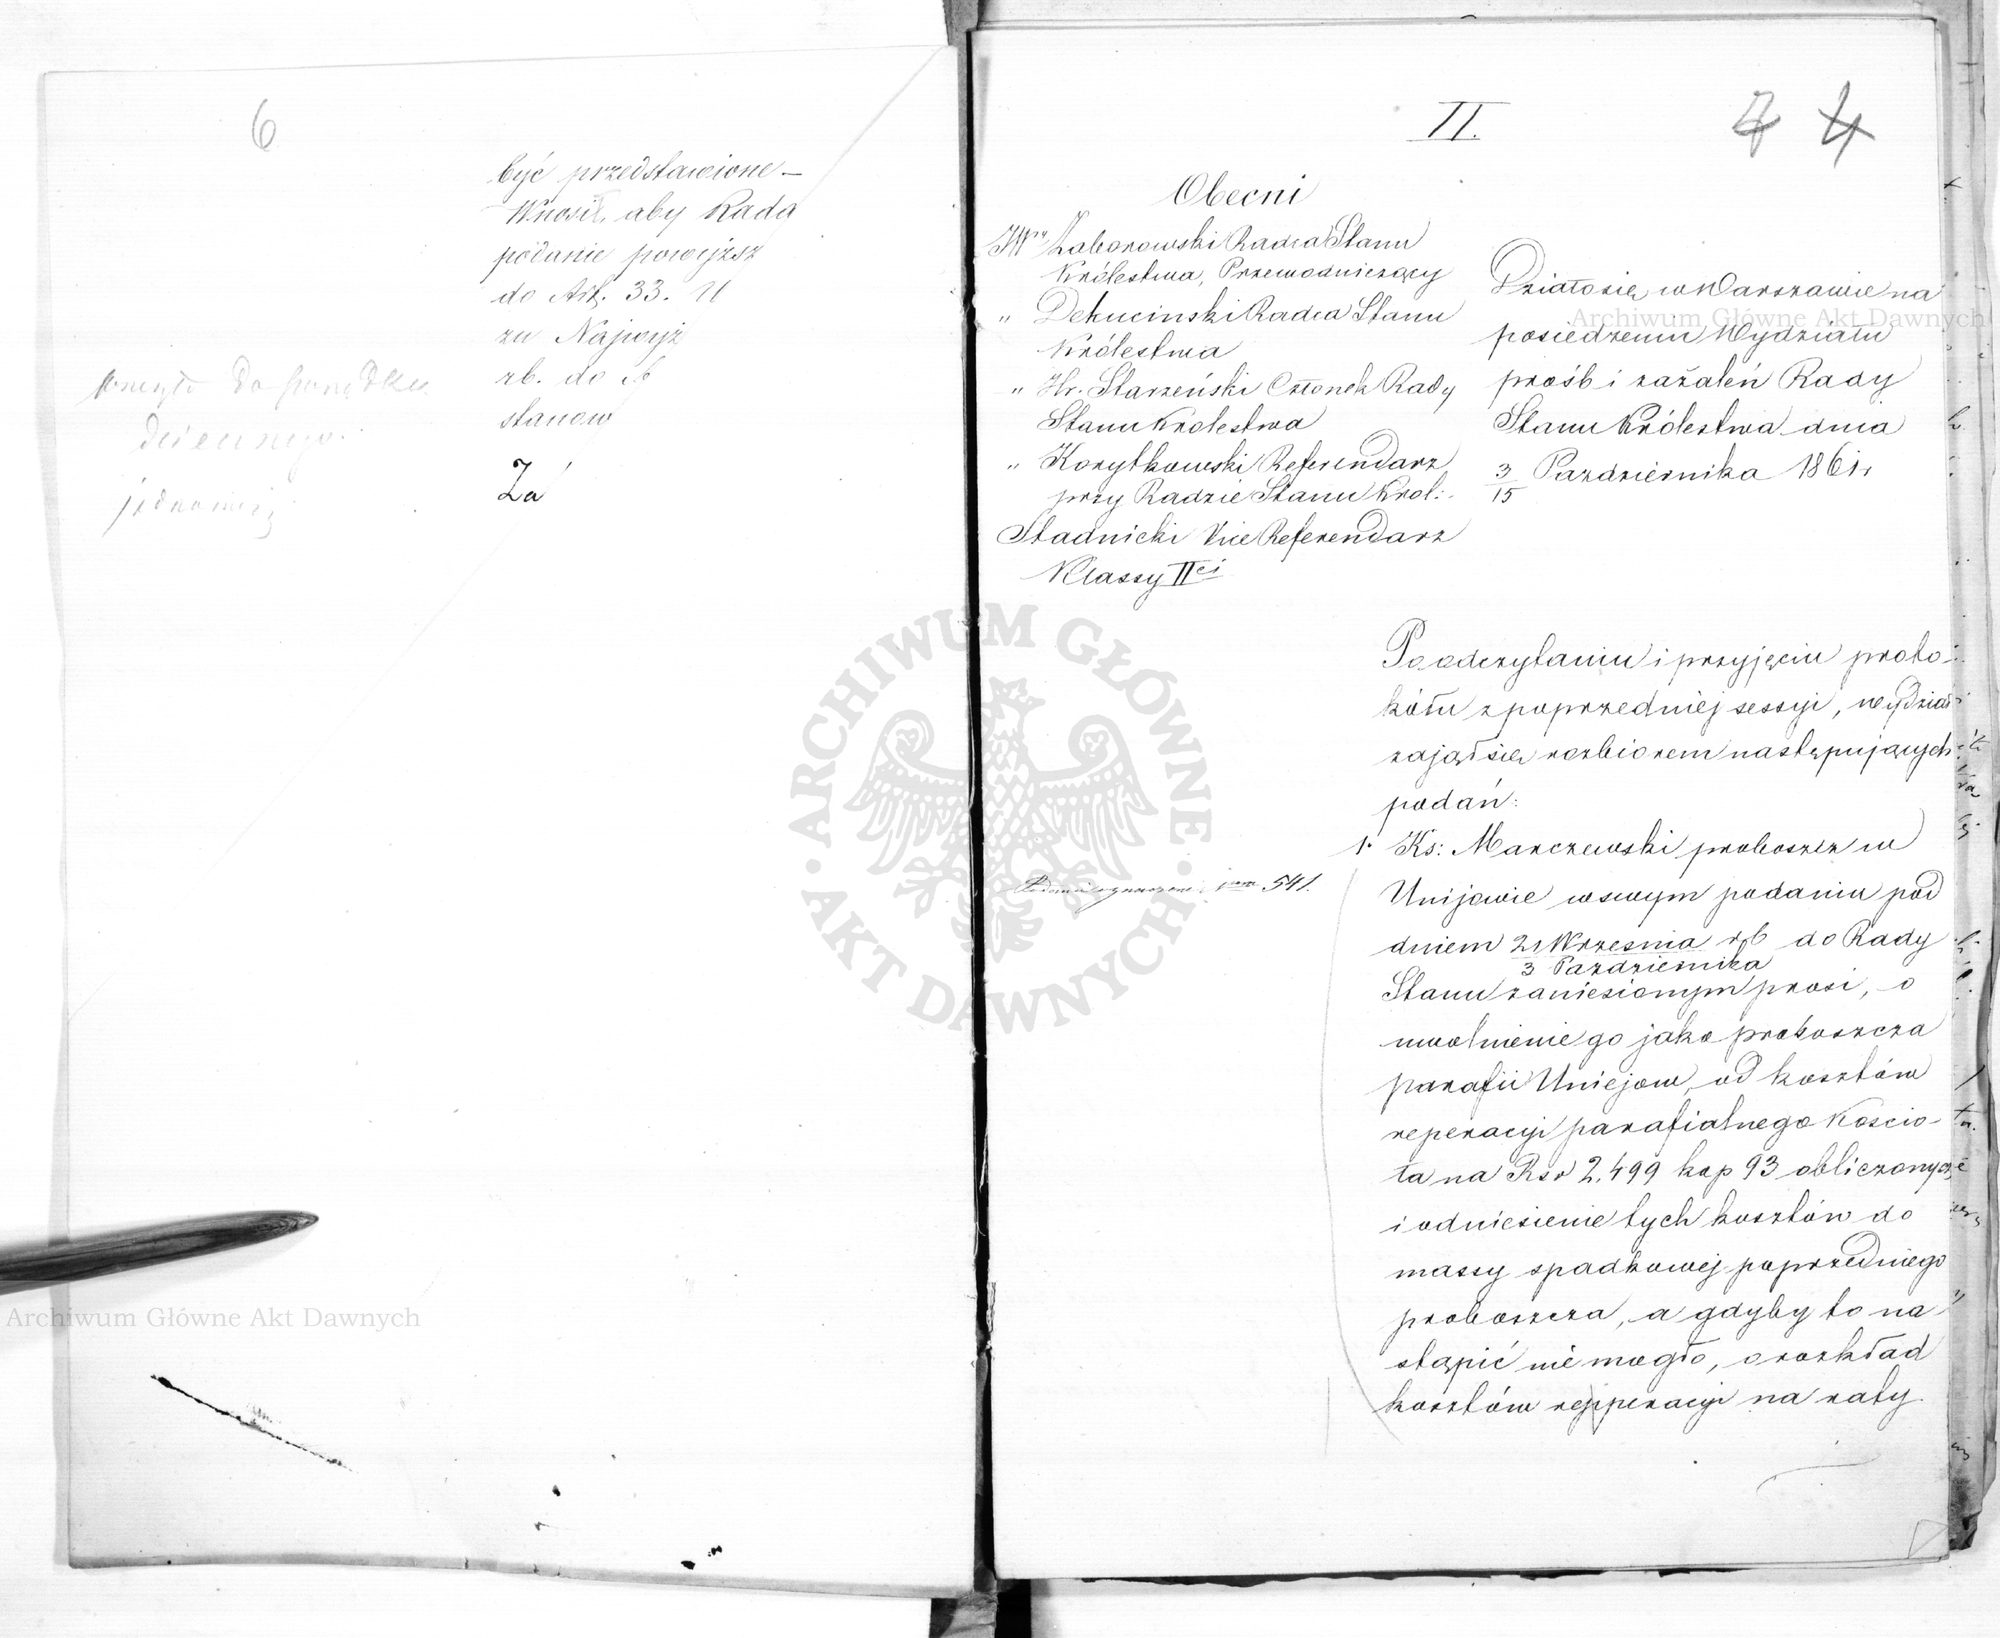 6
być przedstawione –
Wnosił, aby Rada
podanie powyższ
do Art. 33. U
zu Najwyż
rb. do
stanow
Za
do porządku
dziennego.
II.
7 4
Obecni
JW Zaborowski Radca Stanu
Królestwa, Przewodniczący
" Dekucinski Radca Stanu
Królestwa
" Hr. Starzeński Członek Rady
Stanu Królestwa
" Korytkowski Referendarz
przy Radzie Stanu Król:
Stadnicki Vice Referendarz
Klassy II ci
Działo się w Warszawie na
posiedzeniu Wydziału
próśb i zażaleń Rady
Stanu Królestwa dnia
3/15 Pazdziernika 1861 r
Po odczytaniu i przyjęciu proto-
kółu z poprzedniej sessyi, wydział
zajął się rozbiorem następujących
podań:
1. Ks: Marczewski proboszcz w
Unijewie w swym podaniu pod
541.
dniem 21 Wrzesnia rb do Rady
3 Pazdziernika
Stanu zaniesionym prosi, o
uwolnienie go jako proboszcza
parafii Uniejow, od kosztów
reperacyi parafialnego Koscio-
ła na Rsr 2,499 kop 93 obliczonych,
i odniesienie tych kosztów do
massy spadkowej poprzedniego
proboszcza, a gdyby to na-
stąpić nie mogło, o rozkład
kosztów repperacyi na raty
ARCHIWUM GŁÓWNE · AKT DAWNYCH ·
Archiwum Główne Akt Dawnych
Archiwum Główne Akt Dawnych